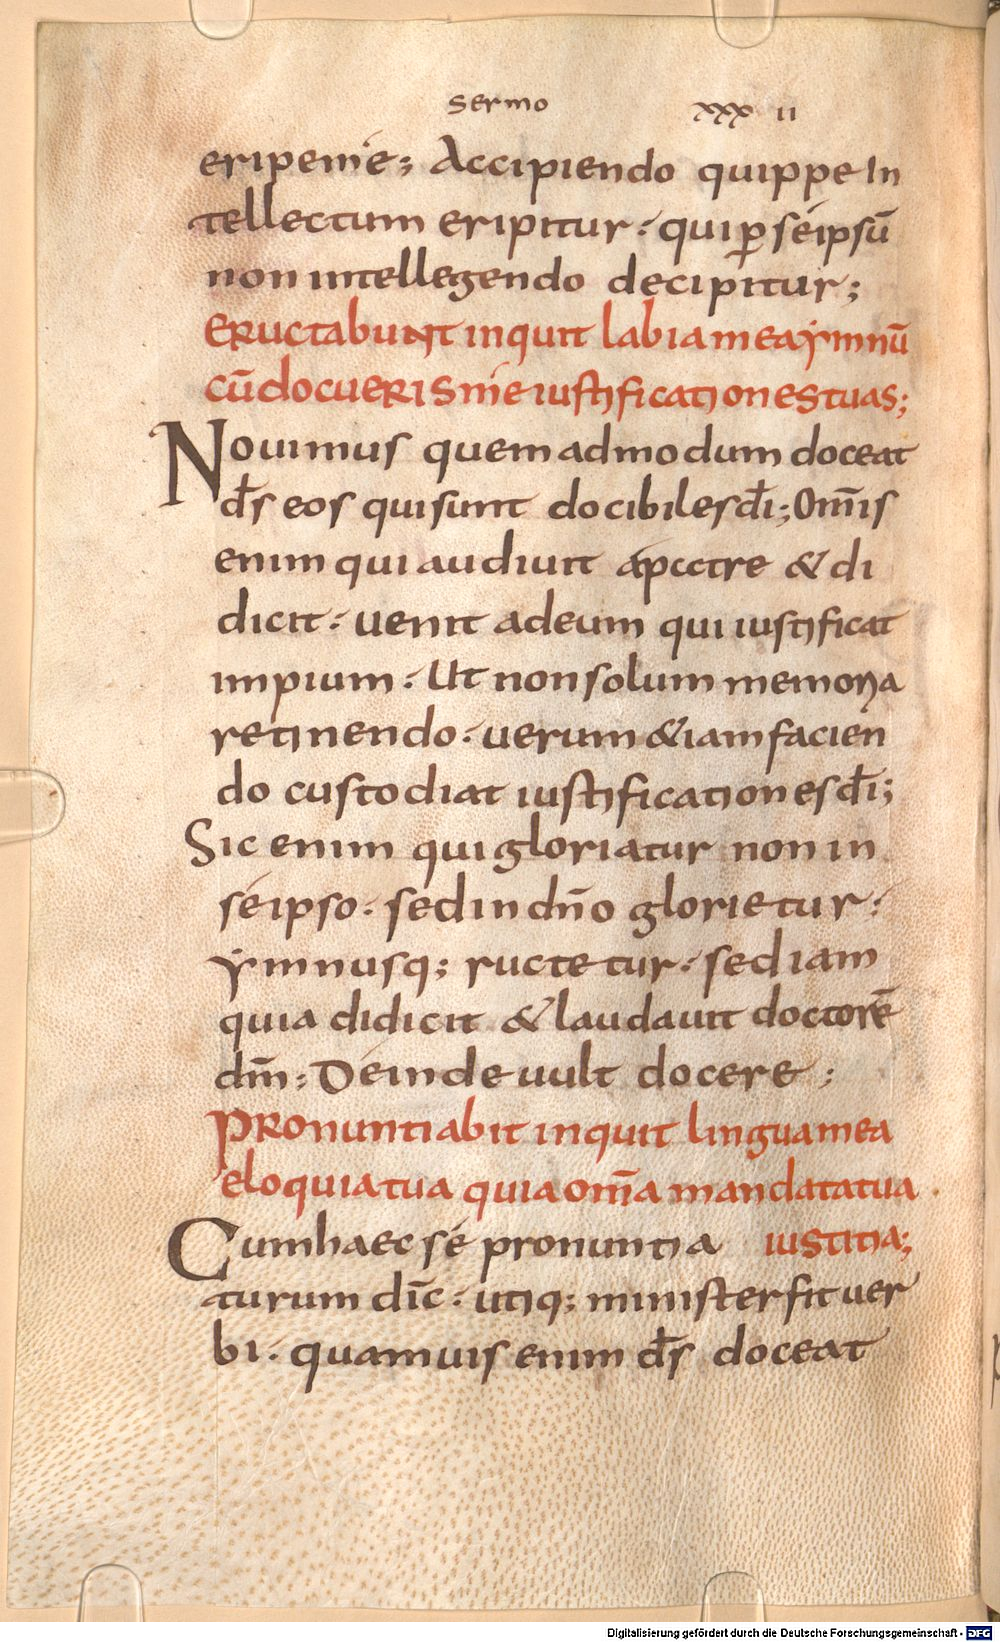 sermo xxx ii
eripeme; Accipiendo quippe In
tellectum eripitur· quip̱ seipsū
non intellegendo decipitur;
ERuctabuNt inquit labia mea ẏmnū
cūdocueRIS me iustificationes tuas;
Nouimus quem admodum doceat
d̄s eos qui sunt docibiles d̄i; Om̄is
enim qui audiuit apatre & di
dicit· uenit adeum qui iustificat
impium· Ut non solum memoria
retinendo· uerum &iam facien
do custodiat iustificationes d̄i;
Sic enim qui gloriatur non in
seipso· sed in dn̄o glorietur·
ẏmnusq; ructetur· sed iam
quia didicit & laudauit doctorē
dm̄· Deinde uult docere;
PROnuntiabit inquit lingua mea
eloquia tua quia om̄a mandata tua
Cum haec se pronuntia iuStitia;
turum dic̄· utiq; minister fit uer
bi· quamuis enim d̄s doceat
Digitalisierung gefördert durch die Deutsche Forschungsgemeinschaft - DFG